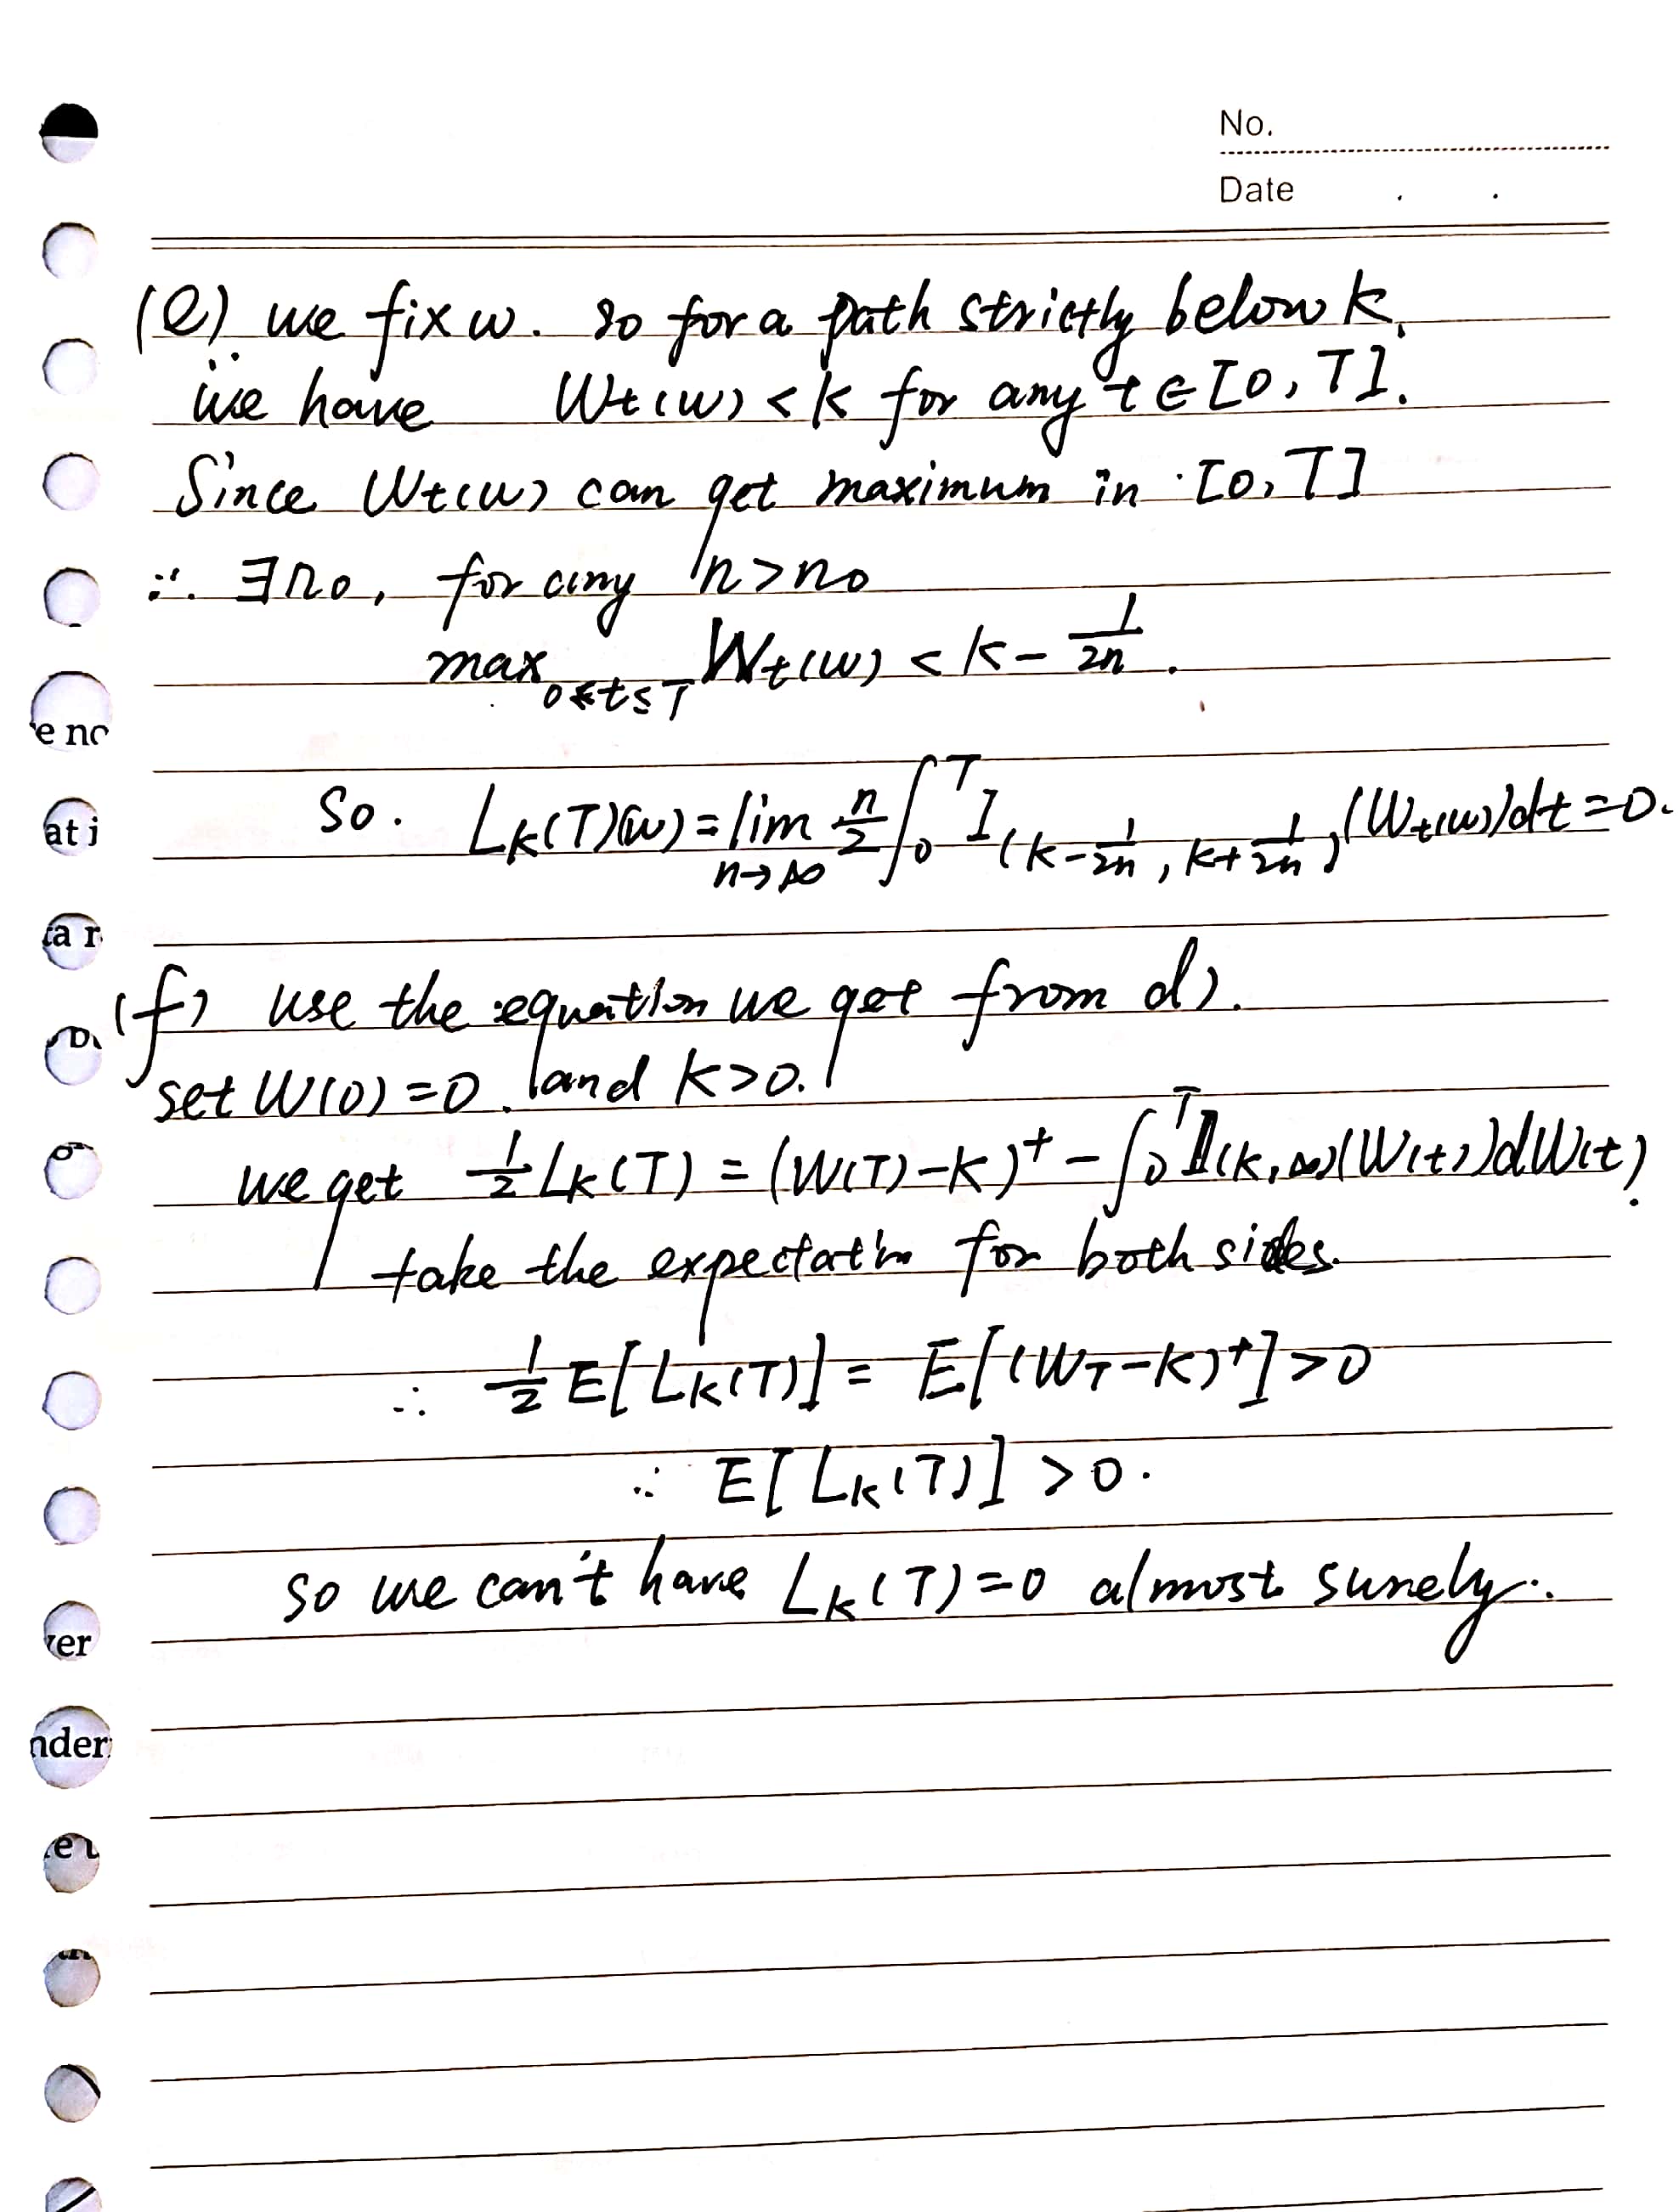 No.
Date . .
(e) we fix w. so for a path strictly below K,
we have Wt(w) < K for any t ∈ [0, T].
Since Wt(w) can get maximum in [0, T]
∴ ∃n0, for any n > n0
max 0≤t≤T Wt(w) < K - 1/2n .
So. LK(T)(w) = lim n→∞ n/2 ∫0^T I(K - 1/2n, K + 1/2n)(Wt(w))dt = 0.
(f) use the equation we get from d).
set W(0) = 0. and K > 0.
we get 1/2 LK(T) = (W(T) - K)^+ - ∫0^T 𝟙(K, ∞)(W(t))dW(t).
take the expectation for both sides.
∴ 1/2 E[LK(T)] = E[(WT - K)^+] > 0
∴ E[LK(T)] > 0.
so we can't have LK(T) = 0 almost surely.
e no
at i
ta r
ver
nder